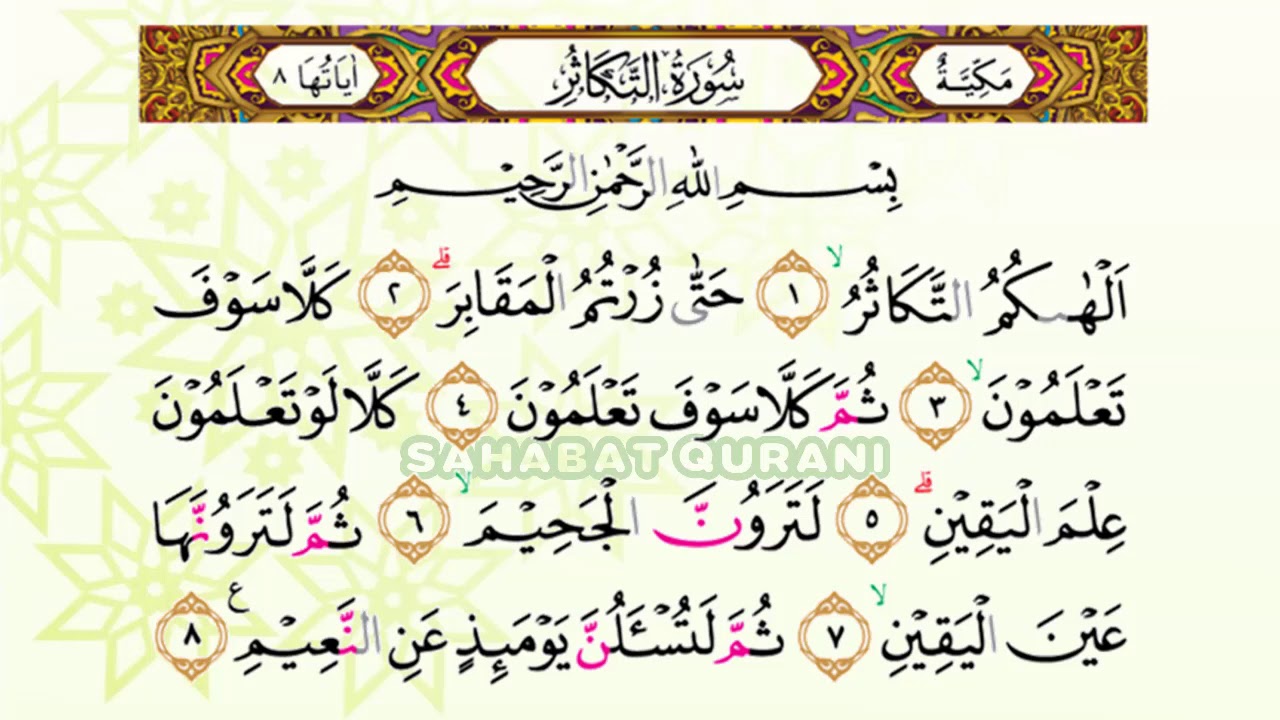 مَكِّيَّةٌ سُورَةُ التَّكَاثُرِ اٰيَاتُهَا ٨
بِسْمِ اللّٰهِ الرَّحْمٰنِ الرَّحِيْمِ
اَلْهٰىكُمُ التَّكَاثُرُۙ ١ حَتّٰى زُرْتُمُ الْمَقَابِرَۗ ٢ كَلَّا سَوْفَ
تَعْلَمُوْنَۙ ٣ ثُمَّ كَلَّا سَوْفَ تَعْلَمُوْنَ ٤ كَلَّا لَوْ تَعْلَمُوْنَ
SAHABAT QURANI
عِلْمَ الْيَقِيْنِۗ ٥ لَتَرَوُنَّ الْجَحِيْمَۙ ٦ ثُمَّ لَتَرَوُنَّهَا
عَيْنَ الْيَقِيْنِۙ ٧ ثُمَّ لَتُسْـَٔلُنَّ يَوْمَىِٕذٍ عَنِ النَّعِيْمِ ع ٨